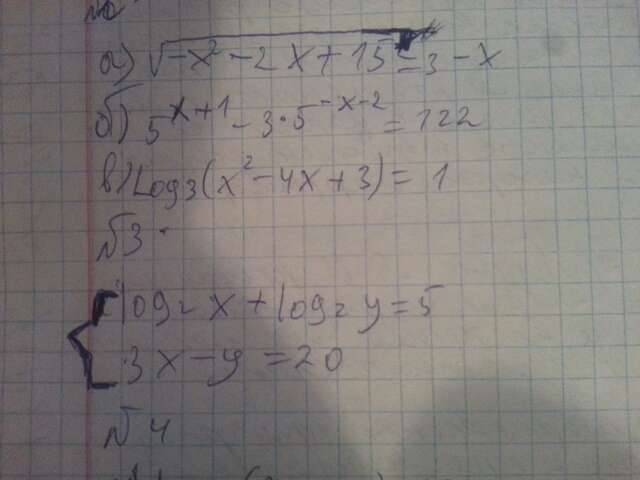 а) √-x² - 2x + 15 = 3 - x
б) 5^x+1 - 3·5^-x-2 = 122
в) Log₃(x² - 4x + 3) = 1
№3
{ log₂ x + log₂ y = 5
3x - y = 20
№4